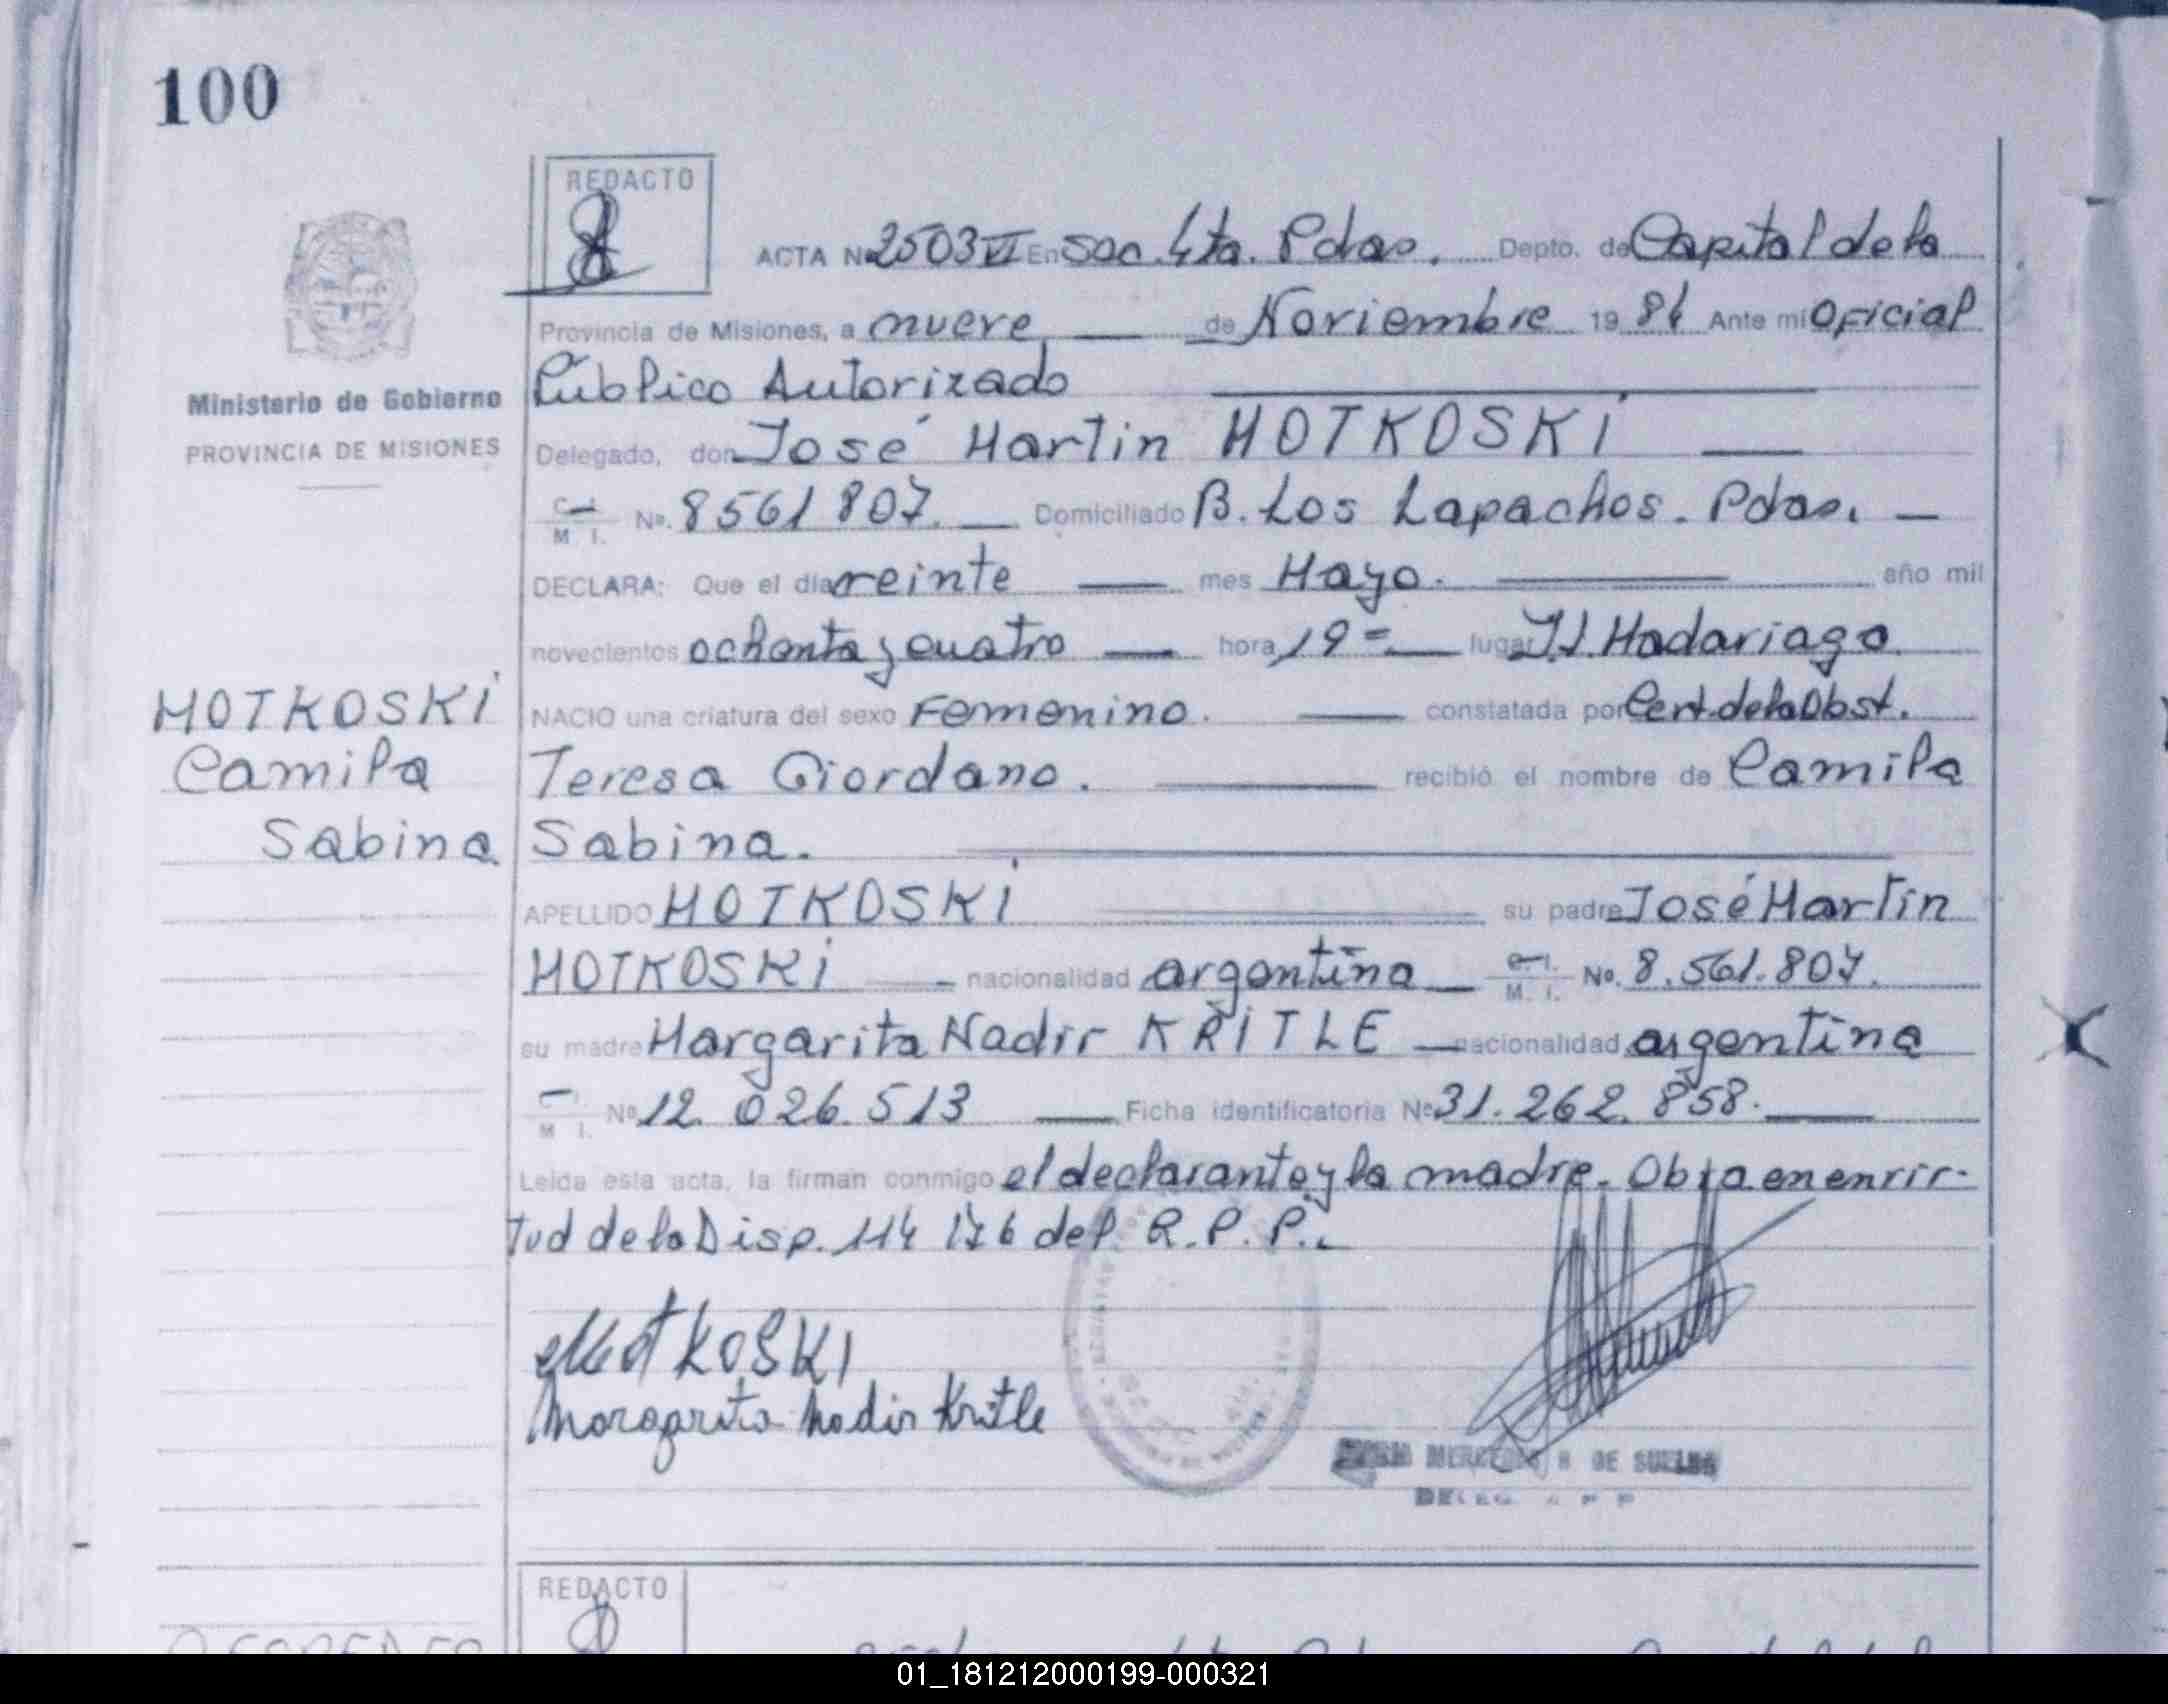 100
REDACTO
ACTA Nº 2503 VI En Sac. 4ta. Pdas. Depto. de Capital de la
Provincia de Misiones, a nueve de Noviembre 1984 Ante mi Oficial
Público Autorizado
Ministerio de Gobierno
PROVINCIA DE MISIONES
Delegado, don José Martin MOTKOSKI
C. I. M. I. Nº. 8561807. Domiciliado B. Los Lapachos. Pdas.
DECLARA: Que el día veinte mes Mayo. año mil
novecientos ochenta y cuatro hora 19= lugar J.J. Madariaga
MOTKOSKI
Camila
Sabina
NACIO una criatura del sexo Femenino. constatada por Cert. de la Obst.
Teresa Giordano. recibió el nombre de Camila
Sabina.
APELLIDO MOTKOSKI su padre José Martin
MOTKOSKI nacionalidad argentina M. I. Nº. 8.561.807.
su madre Margarita Nadir KRITLE nacionalidad argentina
M I. Nº 12.026.513 Ficha identificatoria Nº 31.262.858.
Leída esta acta, la firman conmigo el declarante y la madre. Obra en en vir-
tud de la Disp. 114 176 del R.P.P.
MOTKOSKI
Margarita Nadir Kritle
MERCEDES R DE SUELDO
DELEG. R P P
REDACTO
01_181212000199-000321